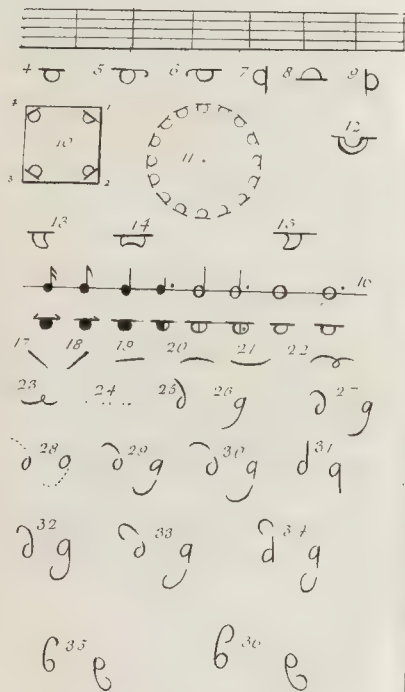 4 5 6 7 8 9
4 1
10 11. 12
3 2
13 14 15
16
17 18 19 20 21 22
23 24 25 26 27
28 29 30 31
32 33 34
35 36